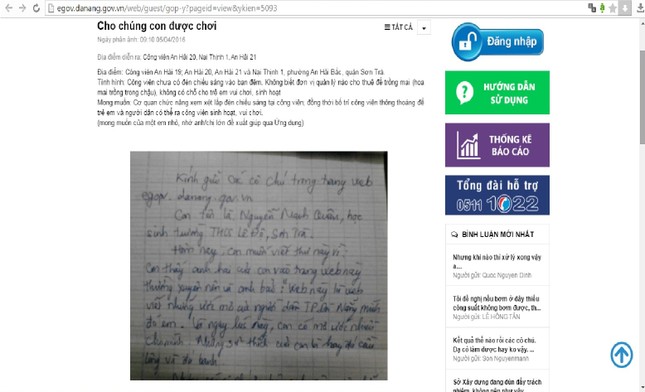 egov.danang.gov.vn/web/guest/gop-y?pageid=view&ykien=5093
Cho chúng con được chơi
TẤT CẢ
Ngày phản ánh: 09:10 05/04/2016
Địa điểm diễn ra: Công viên An Hải 20, Nại Thịnh 1, An Hải 21
Địa điểm: Công viên An Hải 19; An Hải 20, An Hải 21 và Nại Thịnh 1, phường An Hải Bắc, quận Sơn Trà.
Tình hình: Công viên chưa có đèn chiếu sáng vào ban đêm. Không biết đơn vị quản lý nào cho thuê để trồng mai (hoa
mai trồng trong chậu), không có chỗ cho trẻ em vui chơi, sinh hoạt
Mong muốn: Cơ quan chức năng xem xét lắp đèn chiếu sáng tại công viên; đồng thời bố trí công viên thông thoáng để
trẻ em và người dân có thể ra công viên sinh hoạt, vui chơi.
(mong muốn của một em nhỏ, nhờ anh/chị lớn đề xuất giúp qua Ứng dụng)
Kính gửi các cô chú trong trang web
egov.danang.gov.vn
Con tên là Nguyễn Mạnh Quân, học
sinh trường THCS Lê Độ, Sơn Trà.
Hôm nay, con muốn viết thư này vì:
Con thấy anh hai của con vào trang web này
thường xuyên nên và anh bảo: Web này là web
viết những ước mơ của người dân TP. Đà Nẵng
Đăng nhập
HƯỚNG DẪN
SỬ DỤNG
THỐNG KÊ
BÁO CÁO
Tổng đài hỗ trợ
0511 1022
BÌNH LUẬN MỚI NHẤT
Nhưng khi nào thì xử lý xong vậy
ạ...
Người gửi: Quoc Nguyen Dinh
Tôi đề nghị nếu bơm ở đây thiếu
công suất không bơm được, th...
Người gửi: LÊ HỒNG TÂN
Kết quả thế nào rồi các cô chú.
Dạ có làm được hay ko vậy. ...
Người gửi: Son Nguyenmanh
Sở Xây dựng đang đùn đẩy trách
nhiệm, không nên như vậy